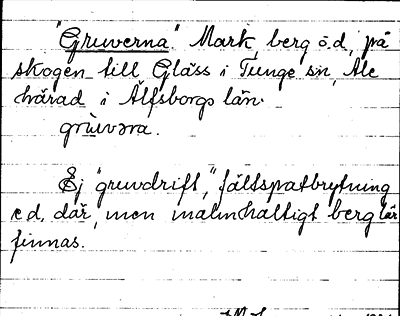 "Gruverna". Mark, berg o.d., på
skogen till Gläss i Tunge sn, Ale
härad i Älfsborgs län.
grùvəra.
Ej "gruvdrift," fältspatbrytning
e.d. där, men malmhaltigt berg lär
finnas.